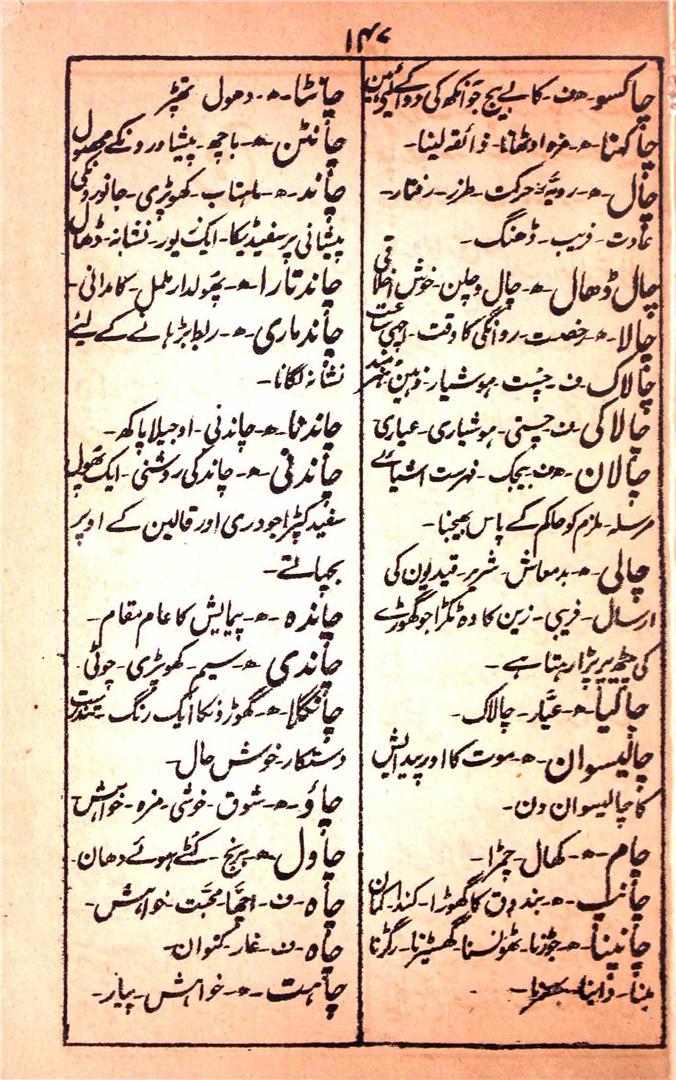 ۱۴۷
چاکسو۔ ھ ف۔ کالے بیج جو آنکھ کی دوا کے لئے ہیں
چاکھنا۔ ھ۔ مزہ اوٹھانا۔ ذائقہ لینا۔
چال۔ ھ۔ رویہ۔ حرکت۔ طرز۔ رفتار۔
عادت۔ فریب۔ ڈھنگ۔
چال ڈھال۔ ھ۔ چال و چلن۔ خوش اخلاقی
چالا۔ ھ۔ رخصت۔ روانگی کا وقت۔ اچھی ساعت
چالاک۔ ف۔ چست۔ ہوشیار۔ ذہین۔ ہنرمند
چالاکی۔ ف۔ چستی۔ ہوشیاری۔ عیاری
چالان۔ ھ ف۔ بیجک۔ فہرست اشیائے
مرسلہ۔ ملزم کو حاکم کے پاس بھیجنا۔
چالی۔ ھ۔ بدمعاش۔ شریر۔ قیدیون کی
ارسال۔ فریبی۔ زین کا وہ ٹکڑا جو گھوڑے
کی پیٹھ پر پڑا رہتا ہے۔
چالیا۔ ھ۔ عیَّار۔ چالاک۔
چالیسوان۔ ھ۔ موت کا اور پیدایش
کا چالیسوان دن۔
چام۔ ھ۔ کھال۔ چمڑا۔
چانپ۔ ھ۔ بندوق کا گھوڑا۔ کندا۔ کمان
چانپنا۔ ھ۔ جوڑنا۔ ٹھونسنا۔ گھسیڑنا۔ رگڑنا
ملنا۔ دابنا۔ بھرنا۔
چانٹا۔ ھ۔ دھول۔ تھپڑ
چانٹن۔ ھ۔ باچھ۔ پیشاورونکے محصول
چاند۔ ھ۔ ماہتاب۔ کھوپڑی۔ جانورونکی
پیشانی پر سفید ٹیکا۔ ایک زیور۔ نشانہ۔ ڈھال
چاندتارا۔ ھ۔ پھولدار ململ۔ کامدانی۔
چاندماری۔ ھ۔ ربط بڑہانے کے لئے
نشانہ لگانا۔
چاندنا۔ ھ۔ چاندنی۔ اوجیلا پاکھ۔
چاندنی۔ ھ۔ چاند کی روشنی۔ ایک پھول
سفید کپڑا جو دری اور قالین کے اوپر
بچھاتے۔
چاندہ۔ ھ۔ پیمایش کا عام مقام۔
چاندی۔ ھ۔ سیم۔ کھوپڑی۔ چوٹی
چانگلا۔ ھ۔ گھوڑونکا ایک رنگ۔ تندرست
دستکار۔ خوش حال۔
چاؤ۔ ھ۔ شوق۔ خوشی۔ مزہ۔ خواہش
چاول۔ ھ۔ برنج۔ کٹے ہوئے دھان۔
چاہ۔ ف۔ اچھا۔ محبَّت۔ خواہش۔
چاہ۔ ف۔ غار۔ کنوان۔
چاہت۔ ھ۔ خواہش۔ پیار۔